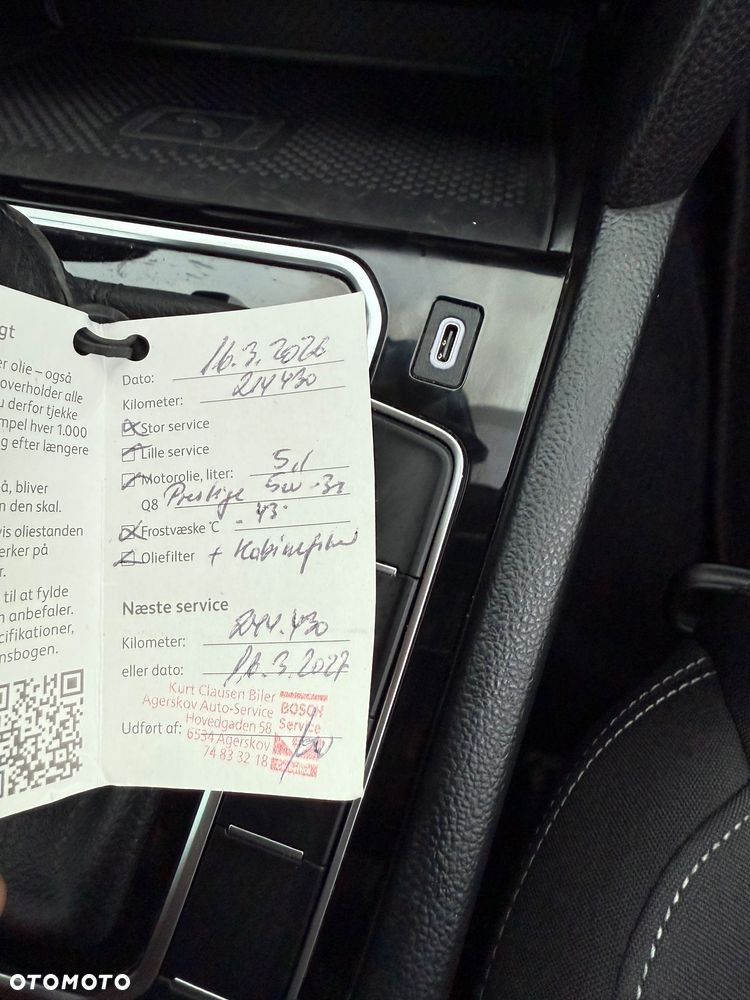 gt
er olie – også
overholder alle
u derfor tjekke
mpel hver 1.000
g efter længere
å, bliver
n den skal.
vis oliestanden
erker på
r.
til at fylde
n anbefaler.
cifikationer,
nsbogen.
Dato: 16.3.2026
Kilometer: 214430
Stor service
Lille service
Motorolie, liter: 5,1
Q8 Prestige 5w-30
Frostvæske °C -43°
Oliefilter + Kabinefilter
Næste service
Kilometer: 244.430
eller dato: 16.3.2027
Udført af:
Kurt Clausen Biler
Agerskov Auto-Service
Hovedgaden 58
6534 Agerskov
74 83 32 18
BOSCH
Service
OTOMOTO